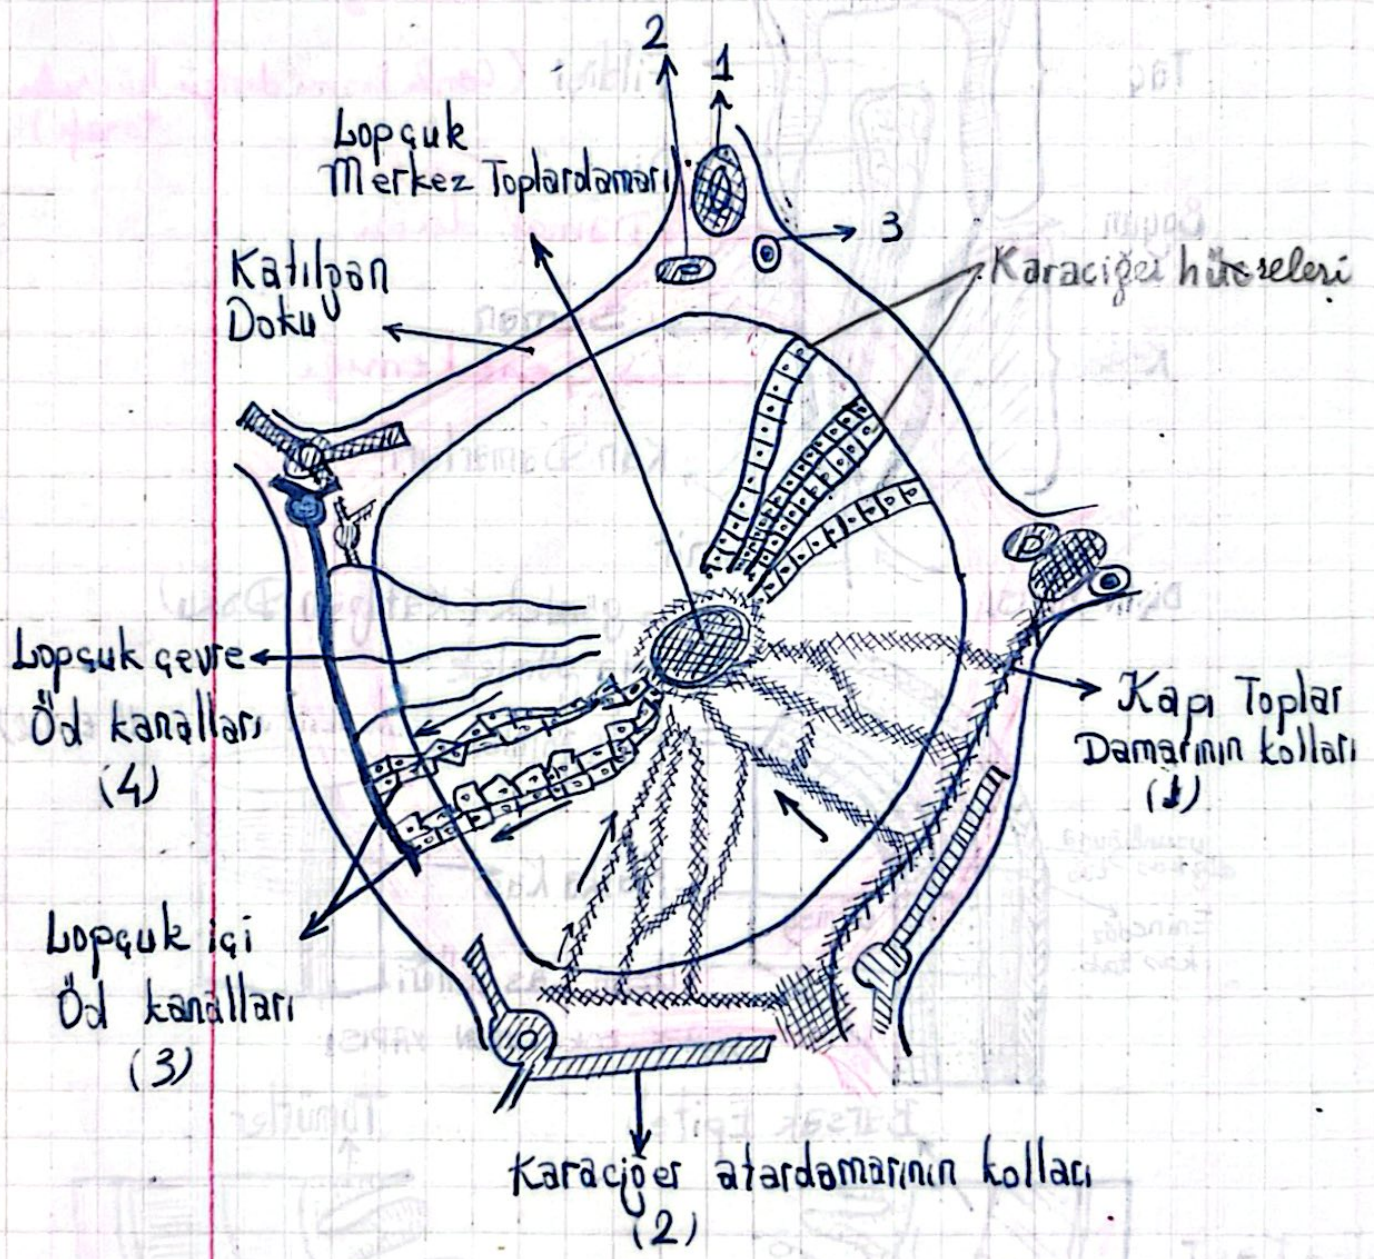 2
1
Lopçuk
Merkez Toplardamarı
3
Katılgan
Doku
Karaciğer hücreleri
Lopçuk çevre
Öd kanalları
(4)
Kapı Toplar
Damarının kolları
(1)
Lopçuk içi
Öd kanalları
(3)
Karaciğer atardamarının kolları
(2)